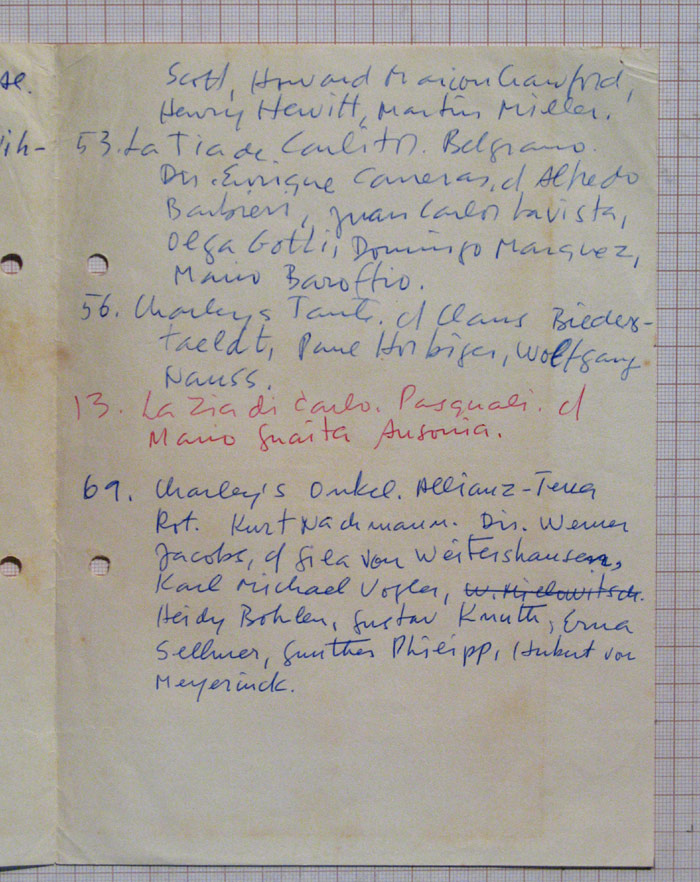 se.
Scott, Howard Marion Crawford,
Henry Hewitt, Martin Miller.
ih- 53. La Tia de Carlitos. Belgrano.
Dir. Enrique Carreras, d Alfredo
Barbieri, Juan Carlos Lavista,
Olga Gotti, Domingo Marquez,
Mario Baroffio.
56. Charleys Tante. d Claus Bieders-
taeldt, Paul Hörbiger, Wolfgang
Nauss.
13. La Zia di Carlo. Pasquali. d
Mario Guaita Ausonia.
69. Charley's Onkel. Allianz-Terra
Rot. Kurt Nachmann. Dir. Werner
Jacobs, d Gila von Weitershausen,
Karl Michael Vogler, W. Millowitsch.
Heidy Bohlen, Gustav Knuth, Erna
Sellmer, Gunther Philipp, Hubert von
Meyerinck.